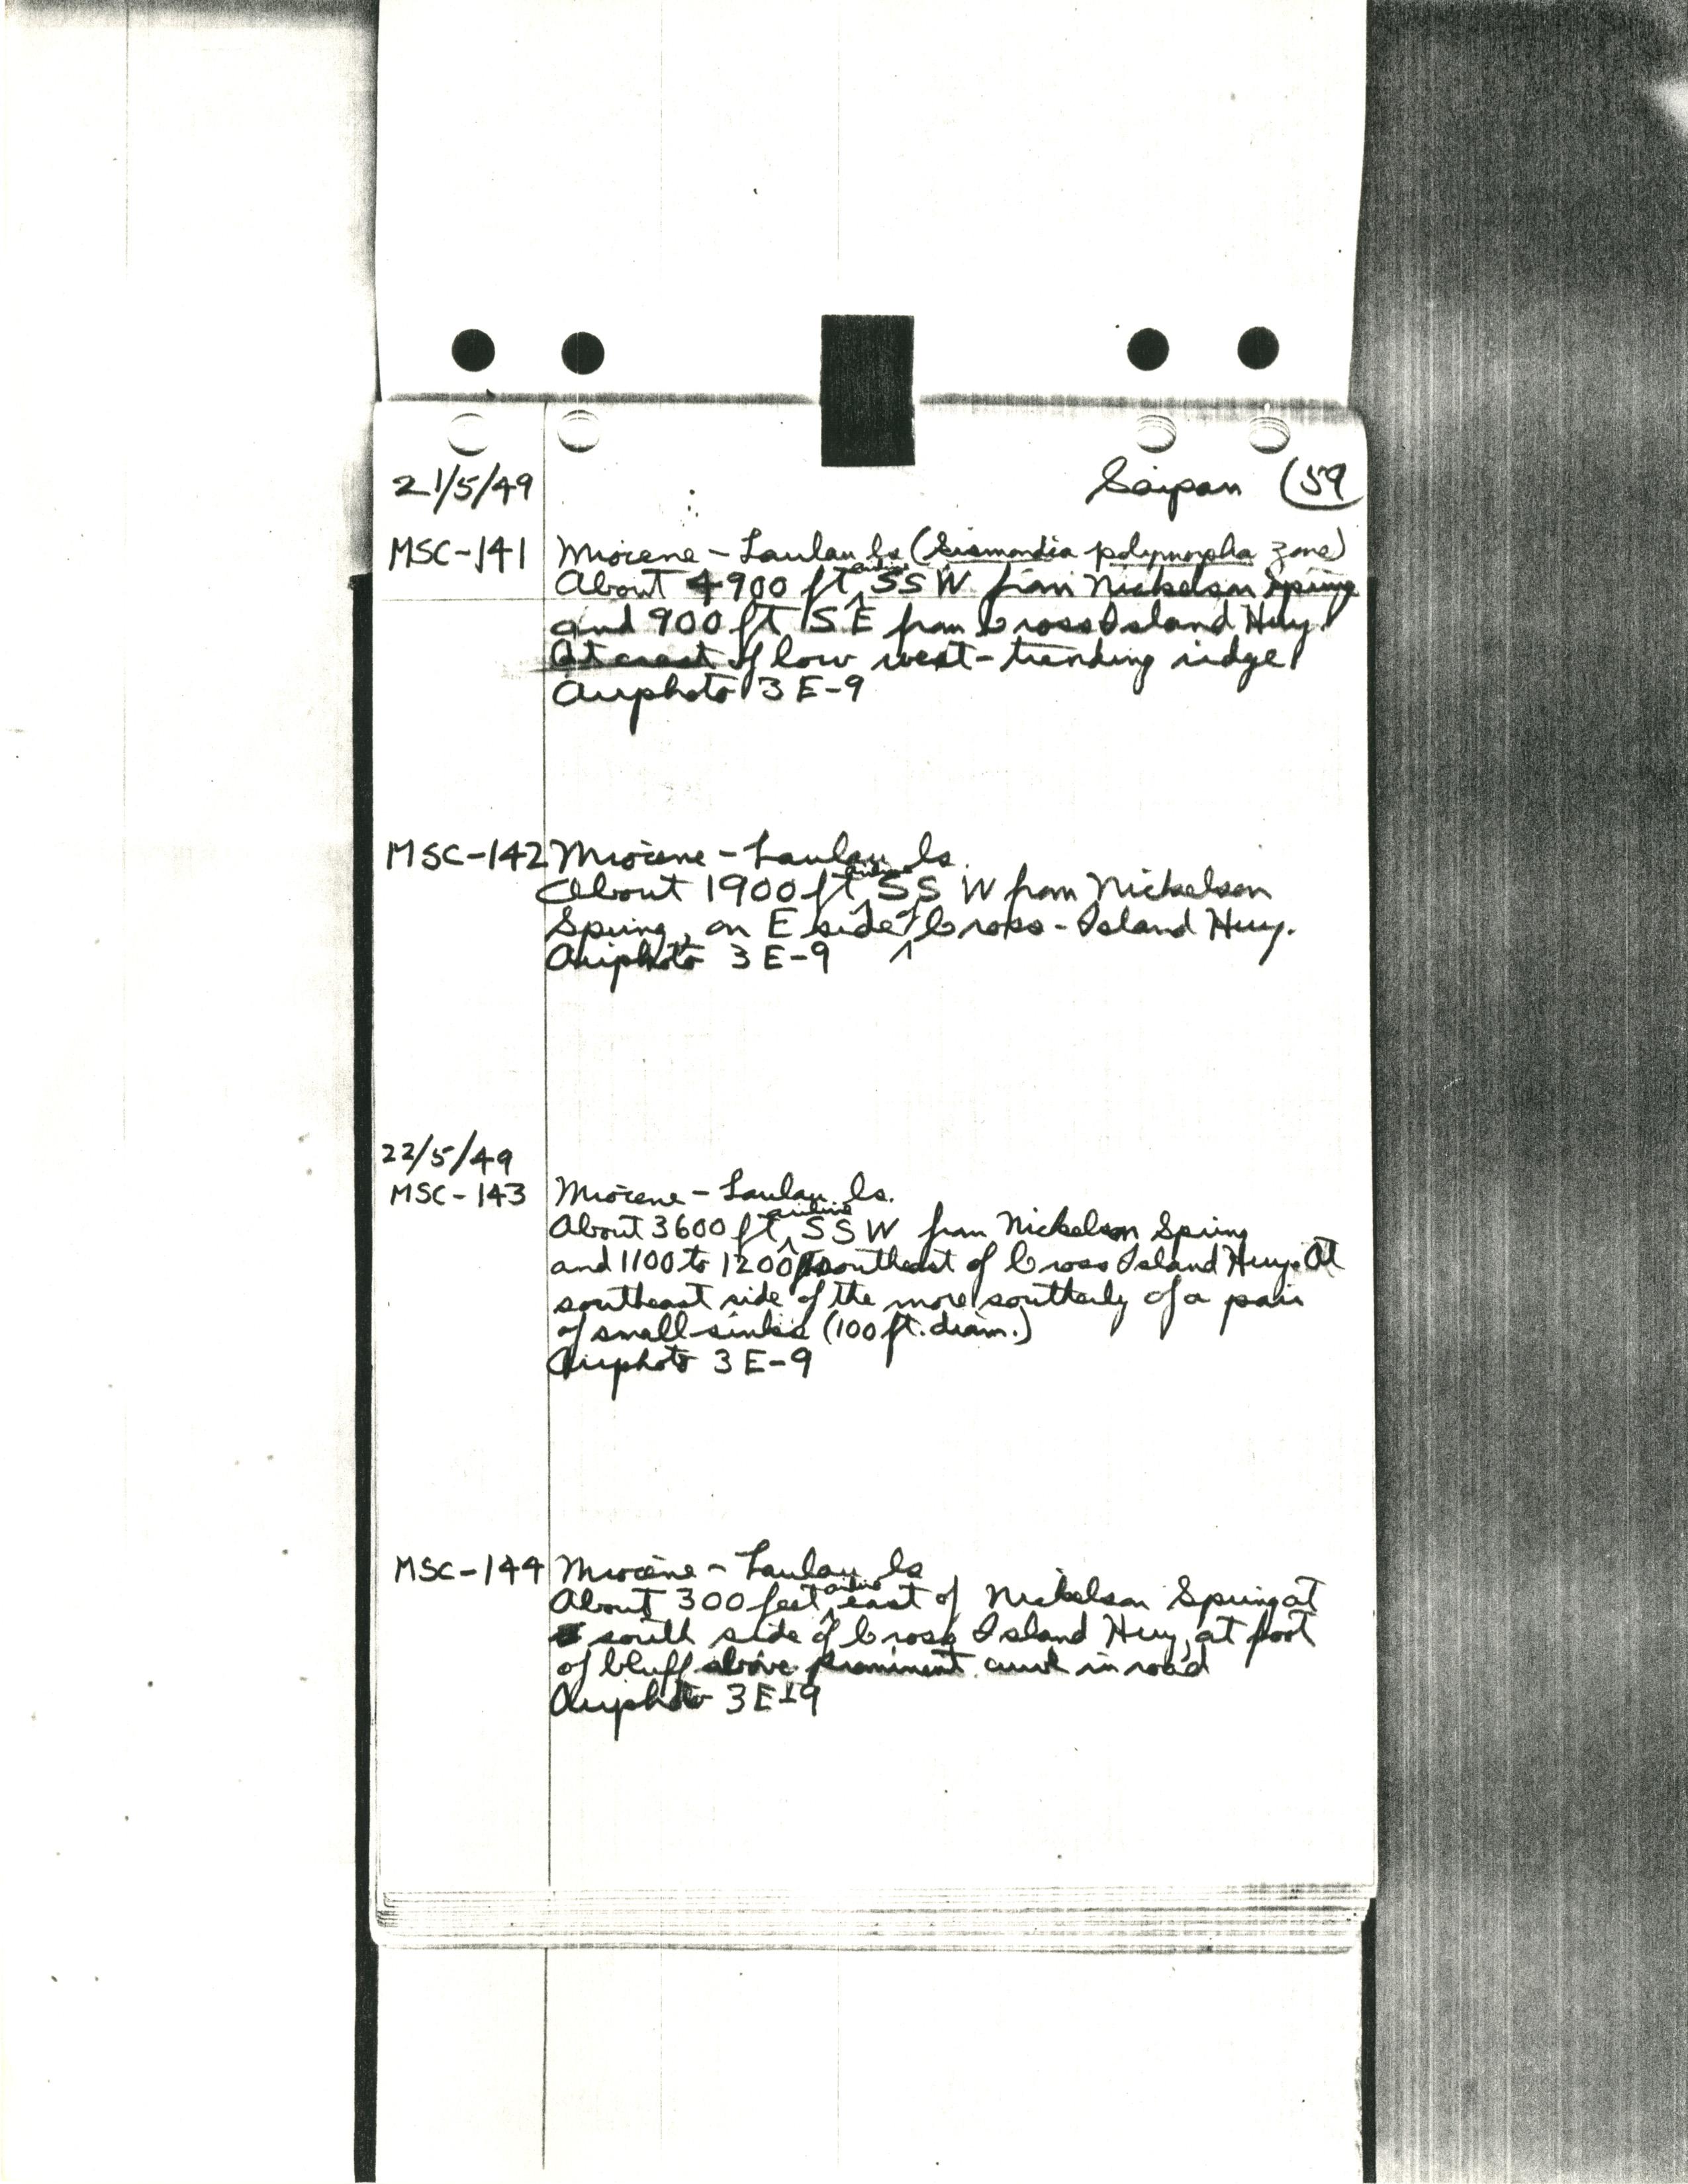 21/5/49 Saipan (59
MSC-141 Miocene - Laulau ls (Sismondia polymorpha zone)
About 4900 ft airline SSW from Nickelson Spring
and 900 ft SE from Cross Island Hwy.
At crest of low west-trending ridge
Airphoto 3 E-9
MSC-142 Miocene - Laulau ls.
About 1900 ft airline SSW from Nickelson
Spring, on E side of Cross-Island Hwy.
Airphoto 3 E-9
22/5/49
MSC-143 Miocene - Laulau ls.
About 3600 ft airline SSW from Nickelson Spring
and 1100 to 1200 ft southeast of Cross Island Hwy. At
southeast side of the more southerly of a pair
of small sinks (100 ft. diam.)
Airphoto 3 E-9
MSC-144 Miocene - Laulau ls
About 300 feet airline east of Nickelson Spring at
south side of Cross Island Hwy, at foot
of bluff above prominent curve in road
Airphoto 3 E-9